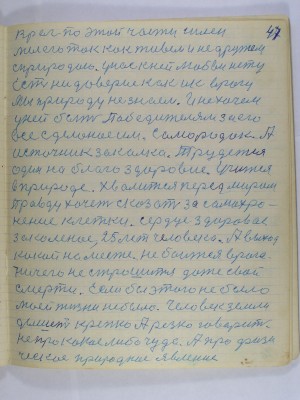 47
Враг по этой части силен
телега так как живем и не дружем
с природою. У нас к ней любви нету
есть ни доверие как и к врагу
Мы природу не знаем. И не хочем
у ней быть Победителям за его
все сделоное им. Самородок. А
источник закалка. Трудется
один на благо здоровие. Учится
в природе. Хвалится перед миром
Правду хочет сказать за самахро-
нение клетки. Сердце здоровае
закаленое, 25 лет человека. А выход
какой на месте. не боится врага.
Ничего не строшится даже свой
смерти. Если бы этого не было
моей жизни не было. Человек земли
дышит крепко А резко гаварит.
не про какое либо чудо. А про физи
ческое природное явление